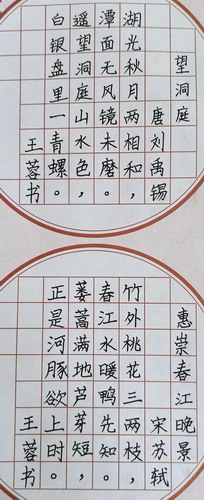 望洞庭
唐 刘禹锡
湖光秋月两相和，
潭面无风镜未磨。
遥望洞庭山水色，
白银盘里一青螺。
王蓉书
惠崇春江晚景
宋 苏轼
竹外桃花三两枝，
春江水暖鸭先知。
蒌蒿满地芦芽短，
正是河豚欲上时。
王蓉书